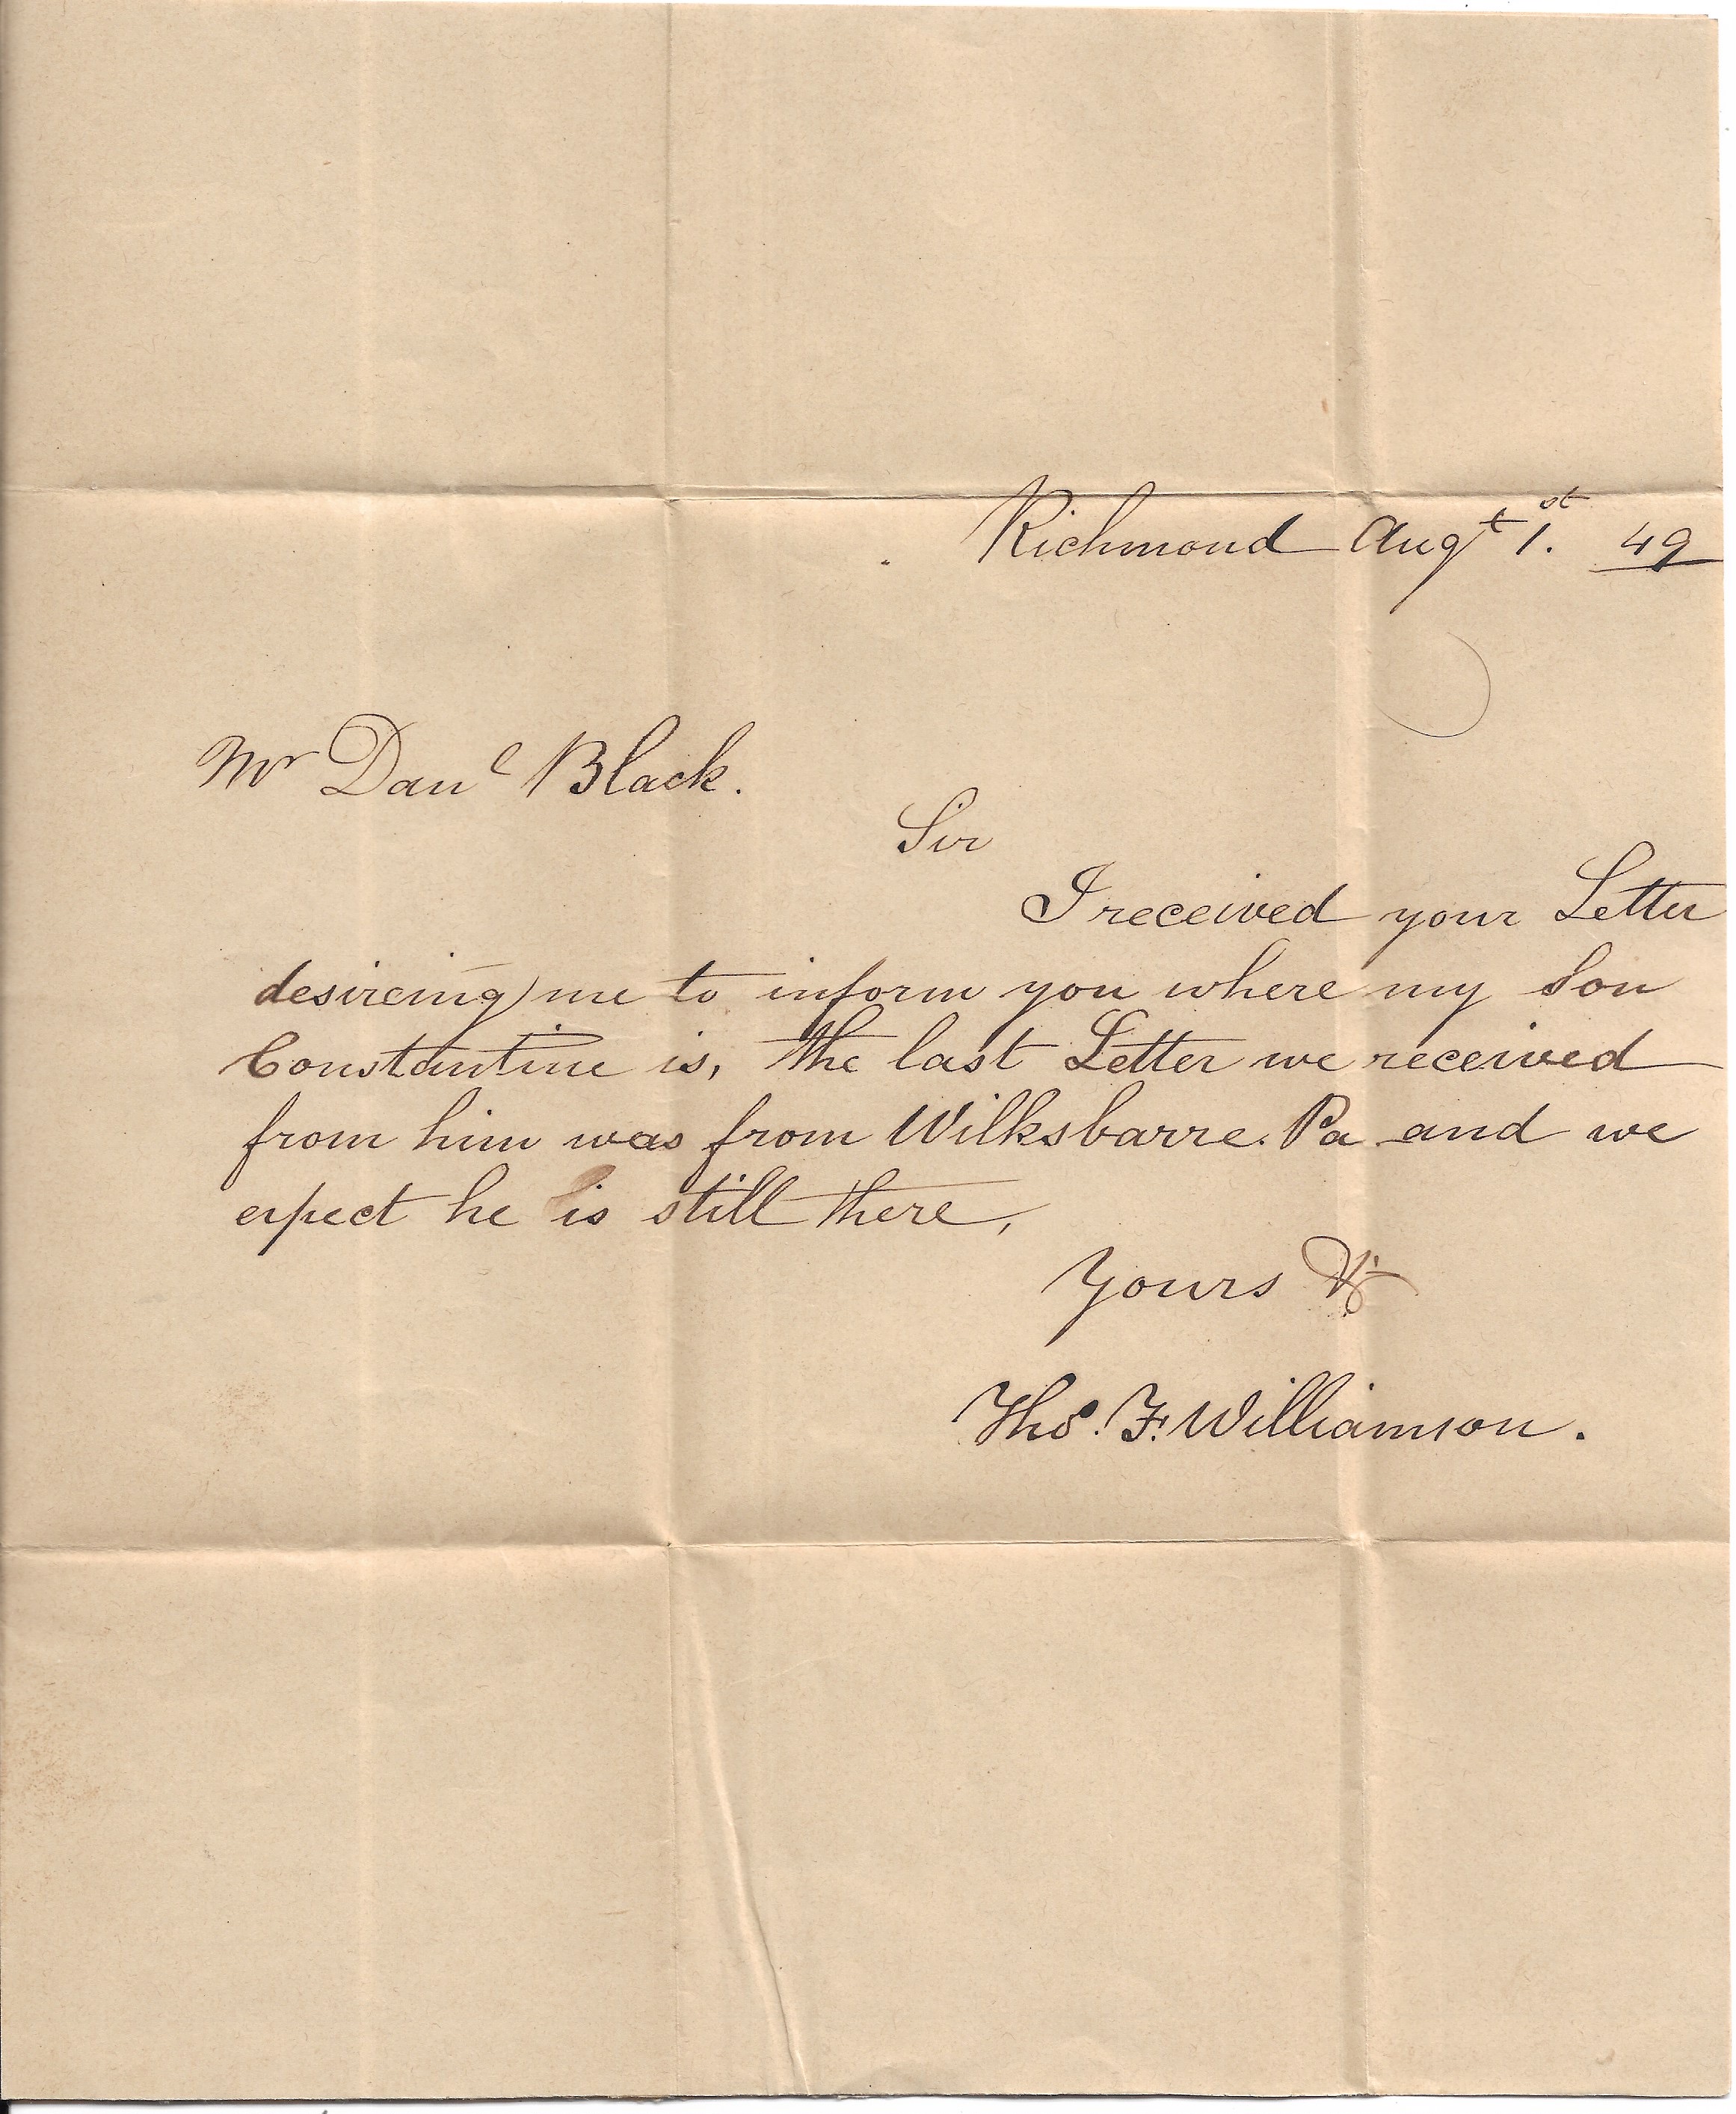 Richmond Augt 1st. 49
Mr Danl Black.
Sir
I received your Letter
desireing me to inform you where my Son
Constantine is, the last Letter we received
from him was from Wilksbarre. Pa and we
expect he is still there,
Yours &c
Thos. F. Williamson.